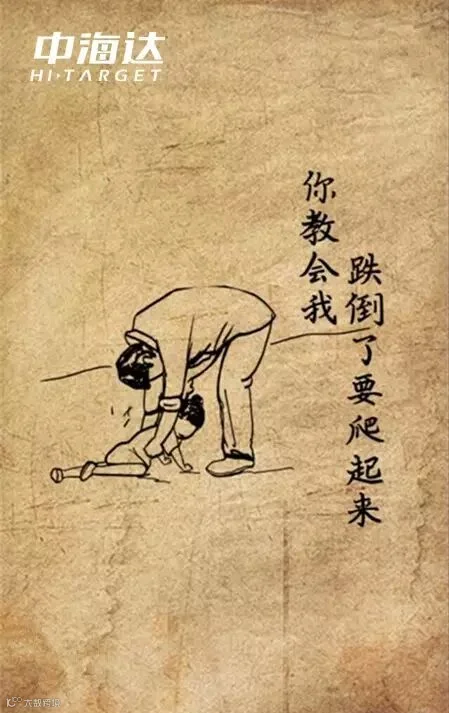 中海达
HI·TARGET
你教会我
跌倒了要爬起来
大数跨境